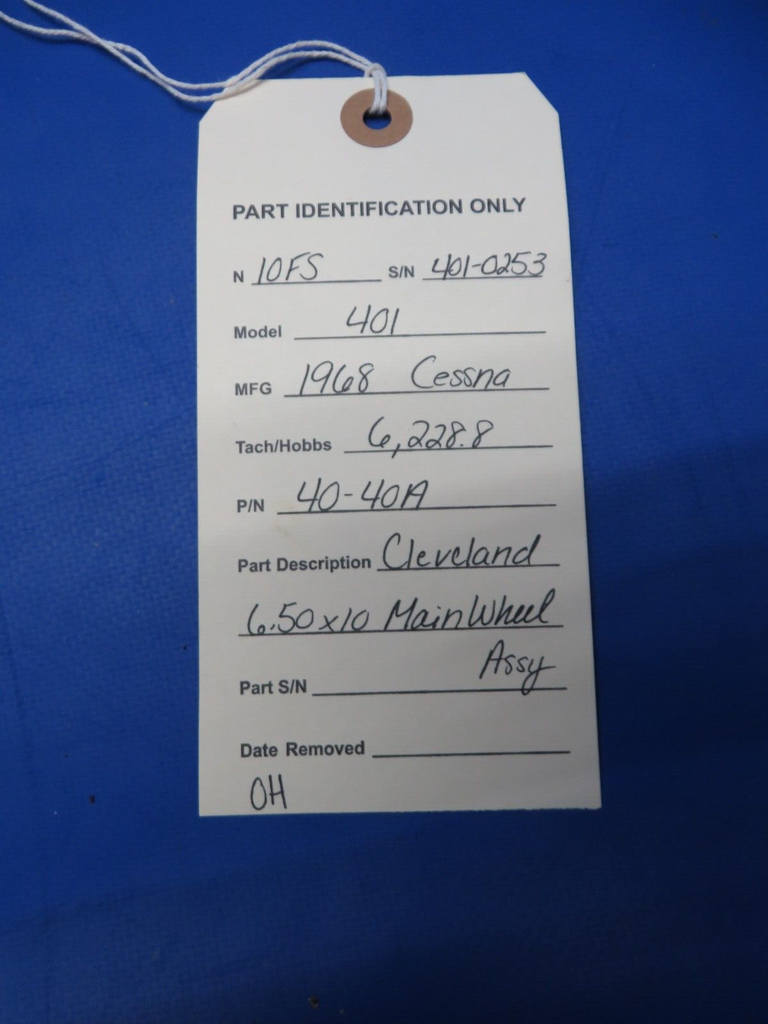 PART IDENTIFICATION ONLY
N 10FS S/N 401-0253
Model 401
MFG 1968 Cessna
Tach/Hobbs 6,228.8
P/N 40-40A
Part Description Cleveland
6.50x10 Main Wheel
Assy
Part S/N
Date Removed
OH